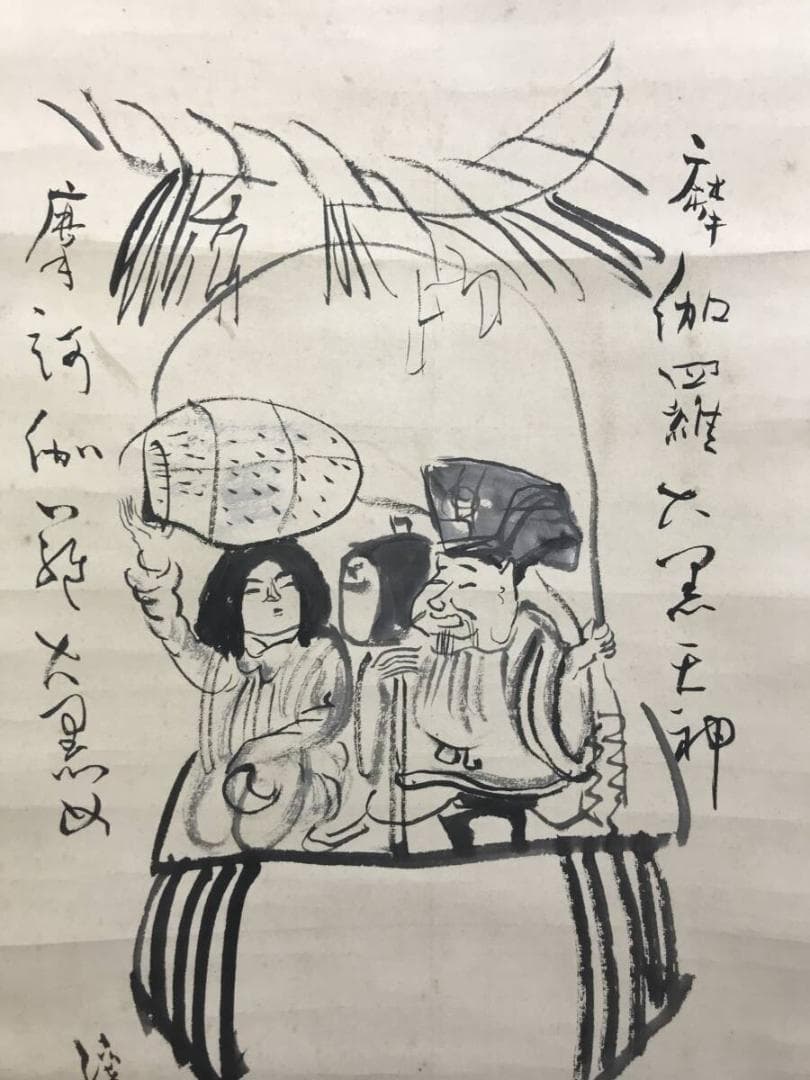 摩伽羅大黒天神
摩訶伽羅大黒女